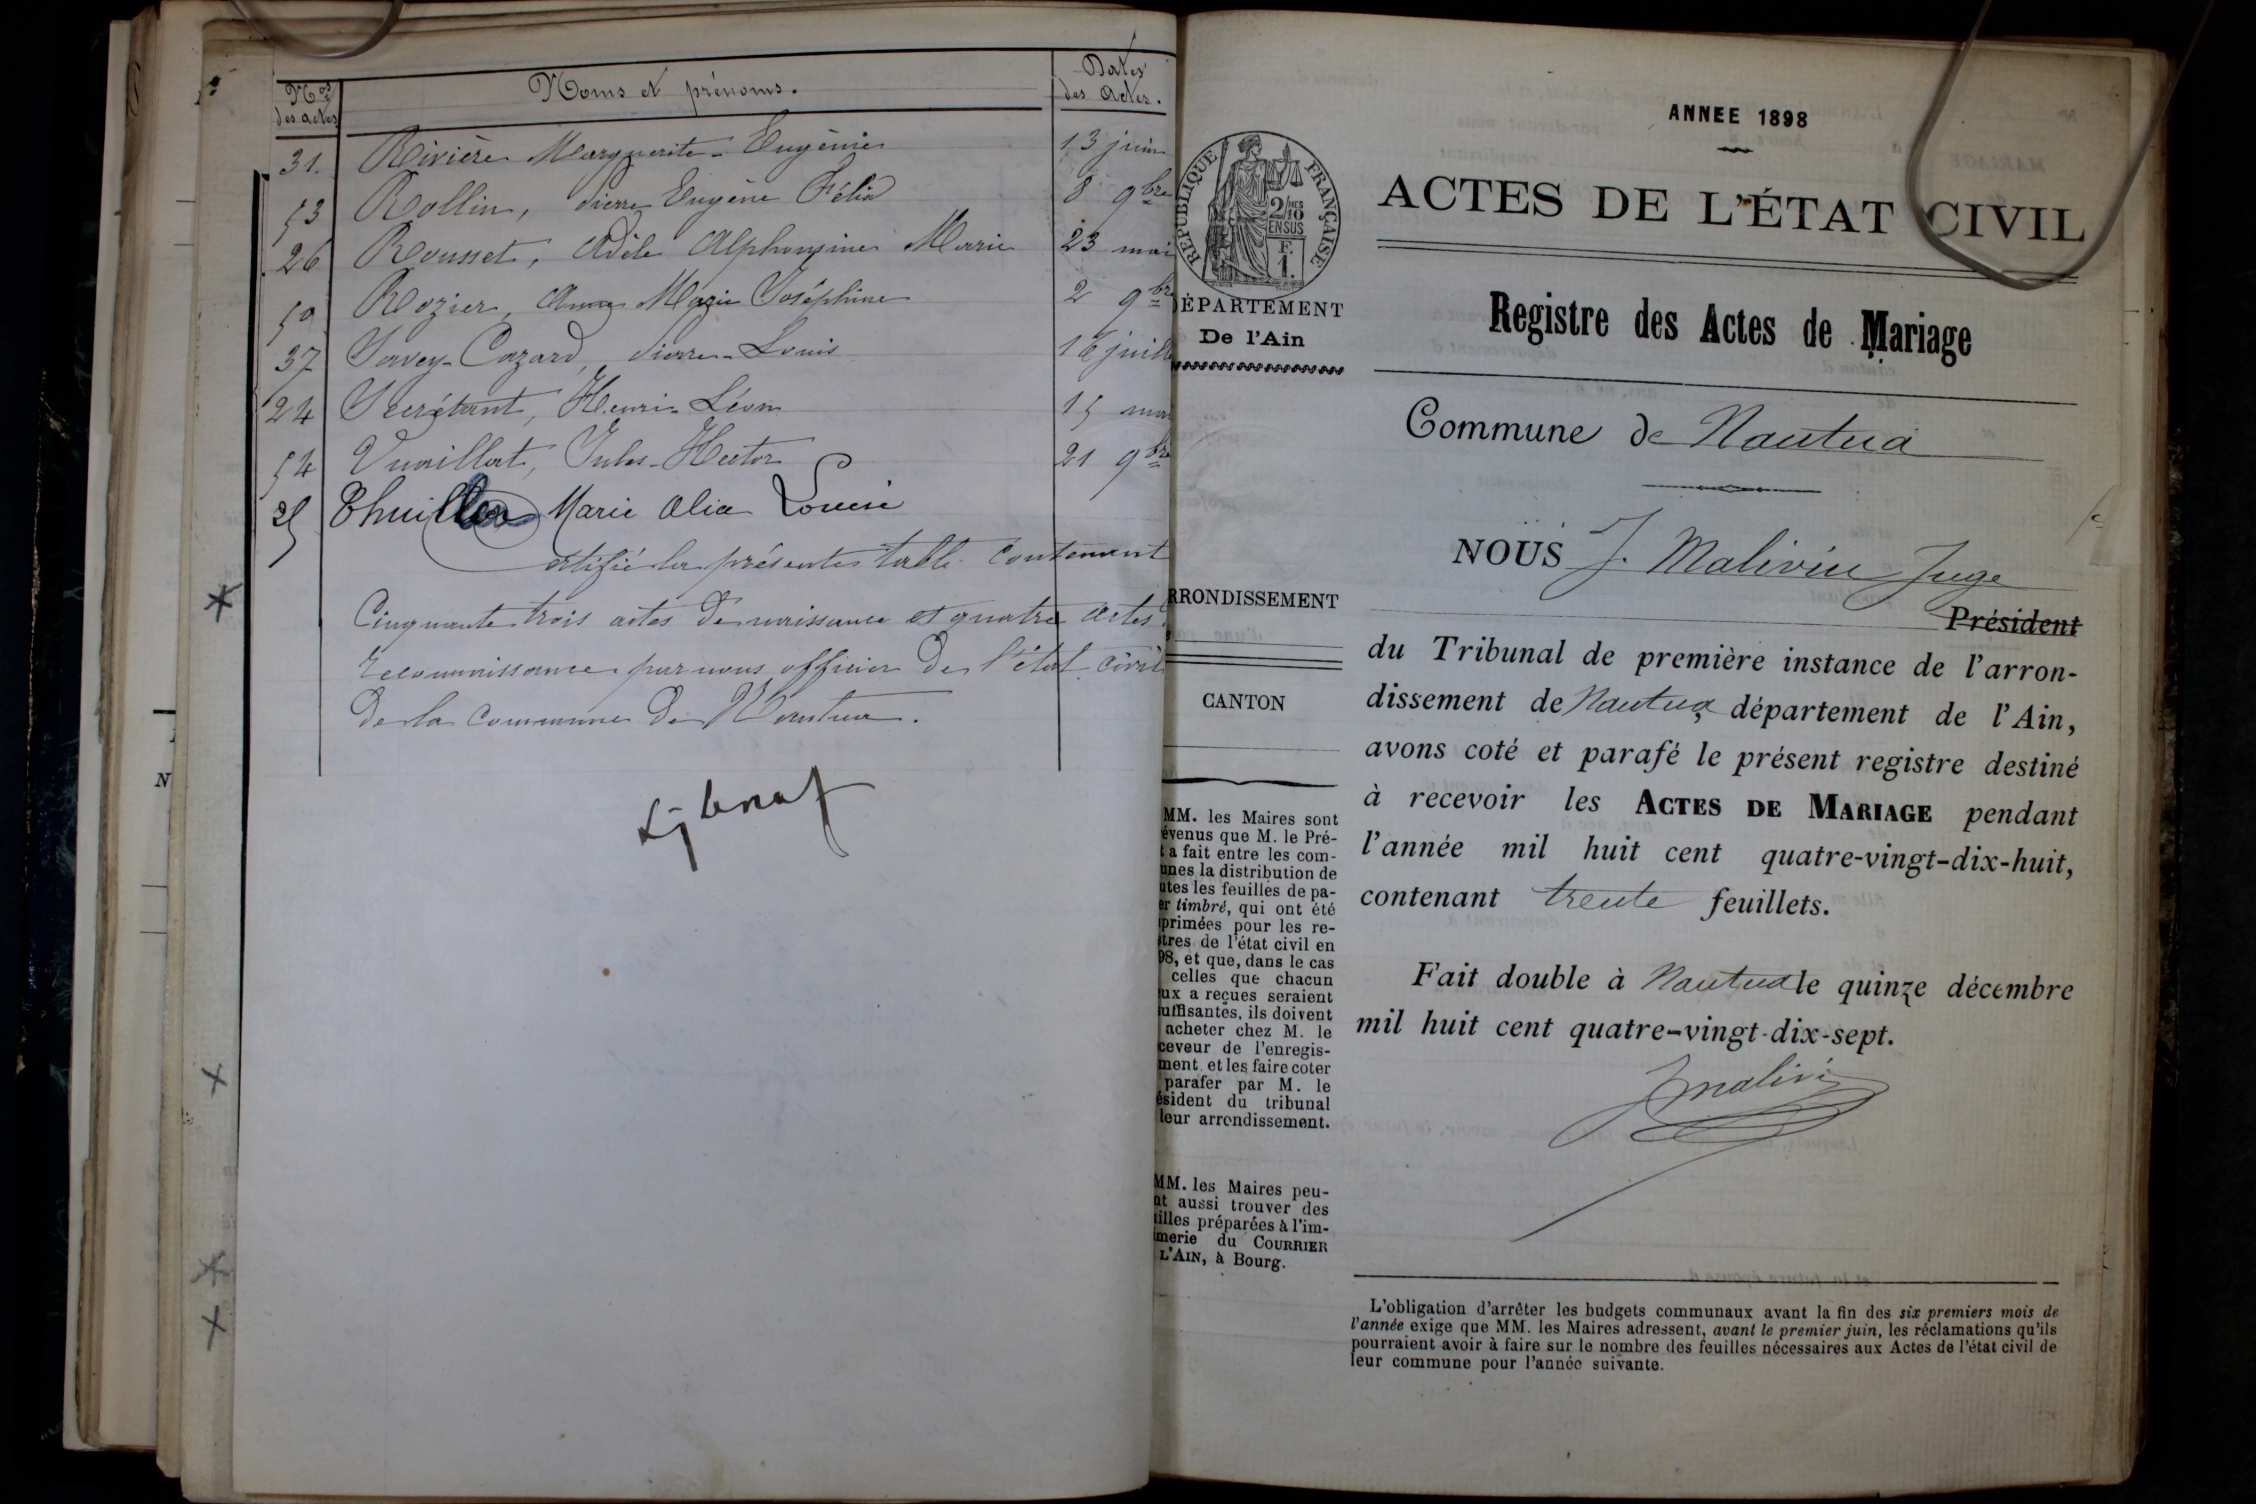 Nos des actes
Noms et prénoms.
Dates des Actes.
31. Rivière Marguerite-Eugénie 13 juin
53 Rollin, Pierre Eugène Félix 8 9bre
26 Rousset, Adèle Alphonsine Marie 23 mai
50 Rozier, Anna Marie Joséphine 2 9bre
37 Servey-Cazard, Pierre-Louis 16 juill
24 Secrétant, Henri-Léon 15 mai
54 Vuaillat, Jules-Hector 21 9bre
25 Thuillier Marie Louise
certifié la présente table contenant
Cinquante trois actes de naissance et quatre actes
reconnaissance par nous officier de l'état civil
de la commune de Nantua.
ANNEE 1898
ACTES DE L'ÉTAT CIVIL
RÉPUBLIQUE FRANÇAISE
2/10 EN SUS
F. 1.
DÉPARTEMENT
De l'Ain
Registre des Actes de Mariage
Commune de Nantua
NOUS J. Malivin Juge
Président
du Tribunal de première instance de l'arron-
dissement de Nantua, département de l'Ain,
avons coté et parafé le présent registre destiné
à recevoir les ACTES DE MARIAGE pendant
l'année mil huit cent quatre-vingt-dix-huit,
contenant trente feuillets.
Fait double à Nantua le quinze décembre
mil huit cent quatre-vingt-dix-sept.
JMalivin
RRONDISSEMENT
CANTON
MM. les Maires sont
évenus que M. le Pré-
t a fait entre les com-
unes la distribution de
utes les feuilles de pa-
er timbré, qui ont été
primées pour les re-
stres de l'état civil en
98, et que, dans le cas
celles que chacun
ux a reçues seraient
uffisantes, ils doivent
acheter chez M. le
ceveur de l'enregis-
ment et les faire coter
parafer par M. le
ésident du tribunal
leur arrondissement.
MM. les Maires peu-
nt aussi trouver des
illes préparées à l'im-
merie du COURRIER
L'AIN, à Bourg.
L'obligation d'arrêter les budgets communaux avant la fin des six premiers mois de
l'année exige que MM. les Maires adressent, avant le premier juin, les réclamations qu'ils
pourraient avoir à faire sur le nombre des feuilles nécessaires aux Actes de l'état civil de
leur commune pour l'année suivante.